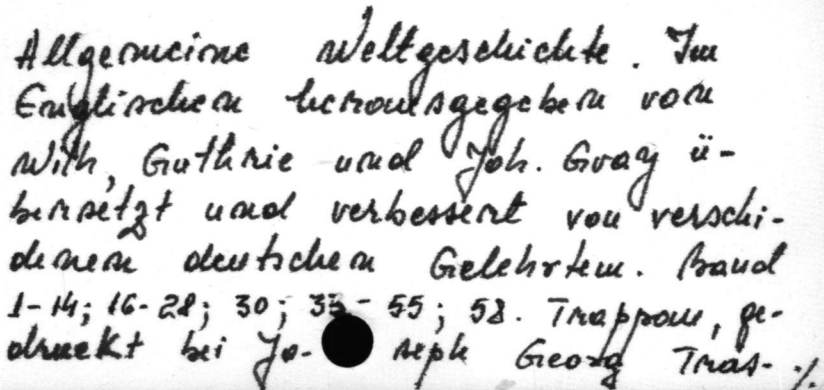 Allgemeine Weltgeschichte. Im
Englischen herausgegeben von
Wilh, Guthrie und Joh. Gray ü-
bersetzt und verbessert von verschi-
denen deutschen Gelehrten. Band
1-14; 16-28; 30; 33-55; 58. Trappau, ge-
druckt bei Jo- seph Georg Tras- ./.